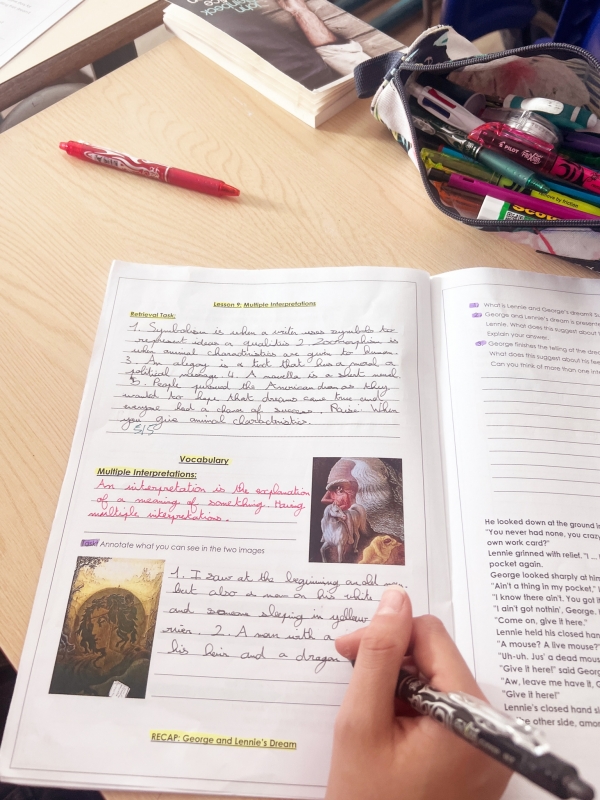 John
Steinbeck
PILOT
FRIXION
Lesson 9: Multiple Interpretations
Retrieval Task:
1. Symbolism is when a writer uses symbols to
represent ideas or qualities 2. Zoomorphism is
when animal characteristics are given to human.
3. An allegory is a text that has a moral or
political message 4. A novella is a short novel.
5. People pursued the American dream as they
wanted to hope that dreams came true and
everyone had a chance of success. When
you give animal characteristics.
5/5
Vocabulary
Multiple Interpretations:
An interpretation is the explanation
of a meaning of something. Having
multiple interpretations.
Task: Annotate what you can see in the two images
1. I saw at the beginning an old
but also a man on his white
and someone sleeping in yellow
2. A man with a
his hair and a dragon
RECAP: George and Lennie's Dream
What's Lennie and George's dream?
George and Lennie's dream is
Lennie. What does this suggest about
Explain your answer.
George finishes the telling of the
What does this suggest about his
Can you think of more than one
He looked down at the ground in
"You never had none, you crazy
own work card?"
Lennie grinned with relief. "I
pocket again.
George looked sharply at him
"Ain't a thing in my pocket,"
"I know there ain't. You got it
"I ain't got nothin', George.
"Come on, give it here."
Lennie held his closed hand
"A mouse? A live mouse?"
"Uh-uh. Jus' a dead mouse
"Give it here!" said George
"Aw, leave me have it,
"Give it here!"
Lennie's closed hand
the other side, among